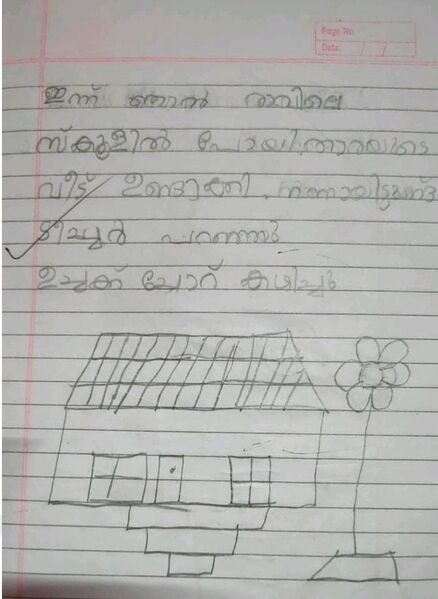 Page No.
Date: / /
ഇന്ന് ഞാൻ രാവിലെ
സ്കൂളിൽ പോയി. താരയുടെ
വീട് ഉണ്ടാക്കി. നന്നായിട്ടുണ്ട്
ടീച്ചർ പറഞ്ഞു
ഉച്ചക്ക് ചോറ് കഴിച്ചു